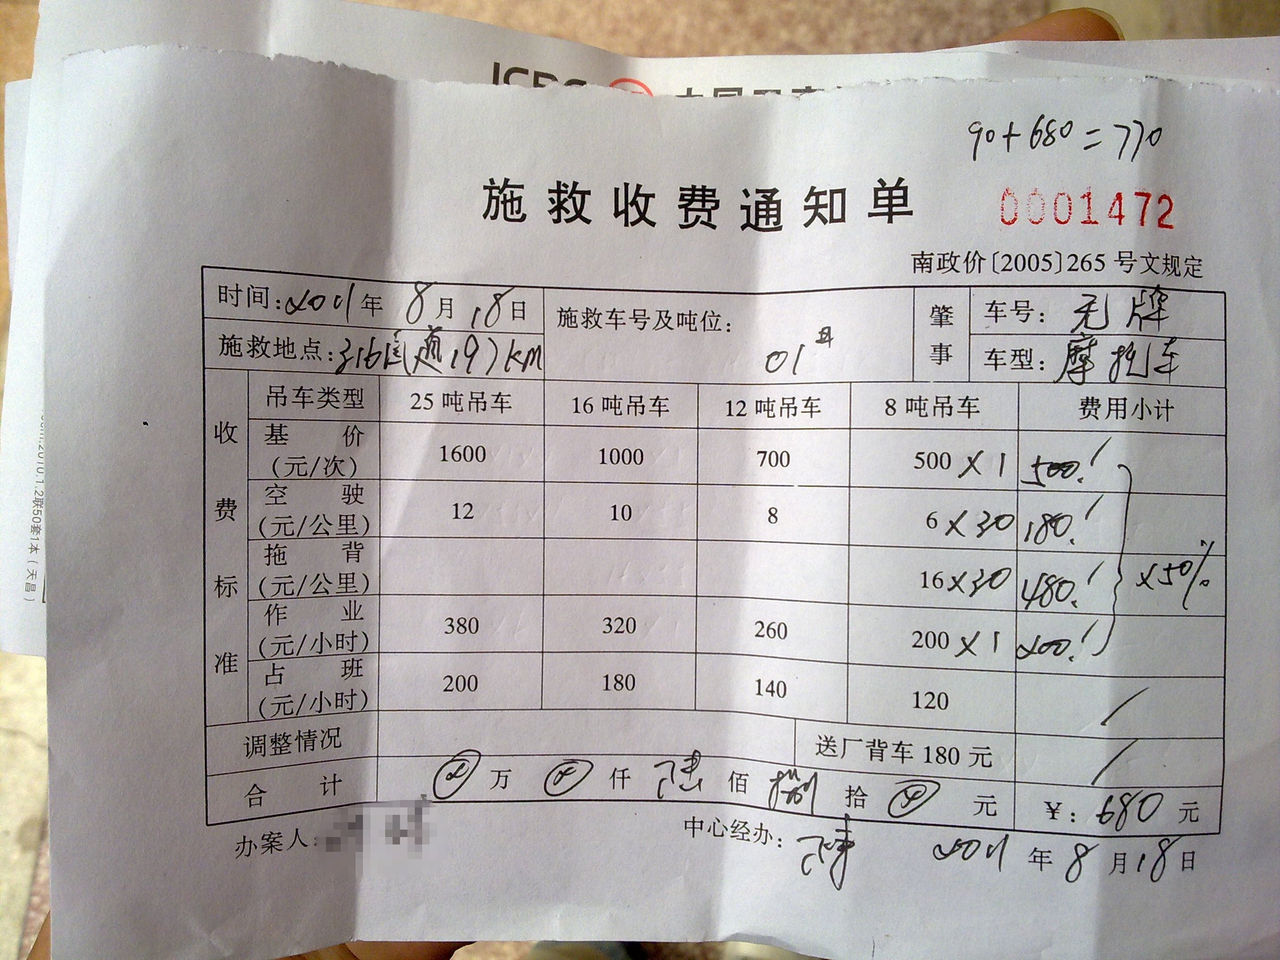 ICBC
90+680=770
施救收费通知单
0001472
南政价〔2005〕265 号文规定
时间: 2011年 8月 18日
施救地点: 316国道197km
施救车号及吨位:
01
肇事
车号: 无牌
车型: 摩托车
收费标准
吊车类型 25 吨吊车 16 吨吊车 12 吨吊车 8 吨吊车 费用小计
基价(元/次) 1600 1000 700 500 ×1 500!
空驶(元/公里) 12 10 8 6 ×30 180!
拖背(元/公里) 16 ×30 480!
×50%
作业(元/小时) 380 320 260 200 ×1 200!
占班(元/小时) 200 180 140 120 /
调整情况 送厂背车 180 元 /
合计 万 仟 陆 佰 捌 拾 元 ¥: 680 元
办案人:
中心经办:
2011 年 8 月 18 日